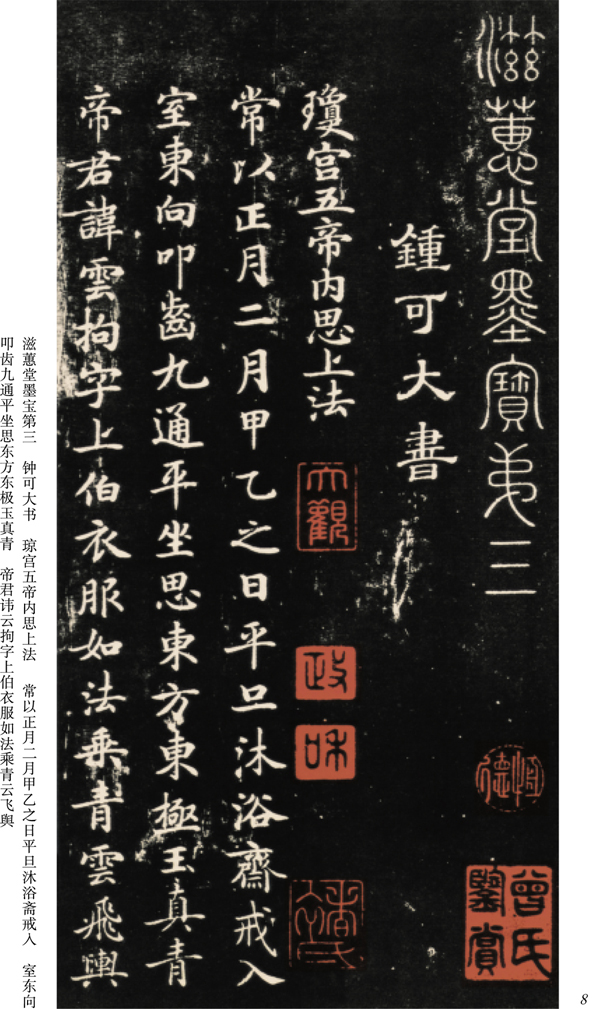 滋蕙堂墨寶弟三
鍾可大書
瓊宫五帝内思上法
常以正月二月甲乙之日平旦沐浴齋戒入
室東向叩齒九通平坐思東方東極玉真青
帝君諱雲拘字上伯衣服如法乘青雲飛輿
大觀
政
和
曾氏
鑒賞
恒德
滋蕙堂墨宝第三　钟可大书　琼宫五帝内思上法　常以正月二月甲乙之日平旦沐浴斋戒入　室东向
叩齿九通平坐思东方东极玉真青　帝君讳云拘字上伯衣服如法乘青云飞舆
8